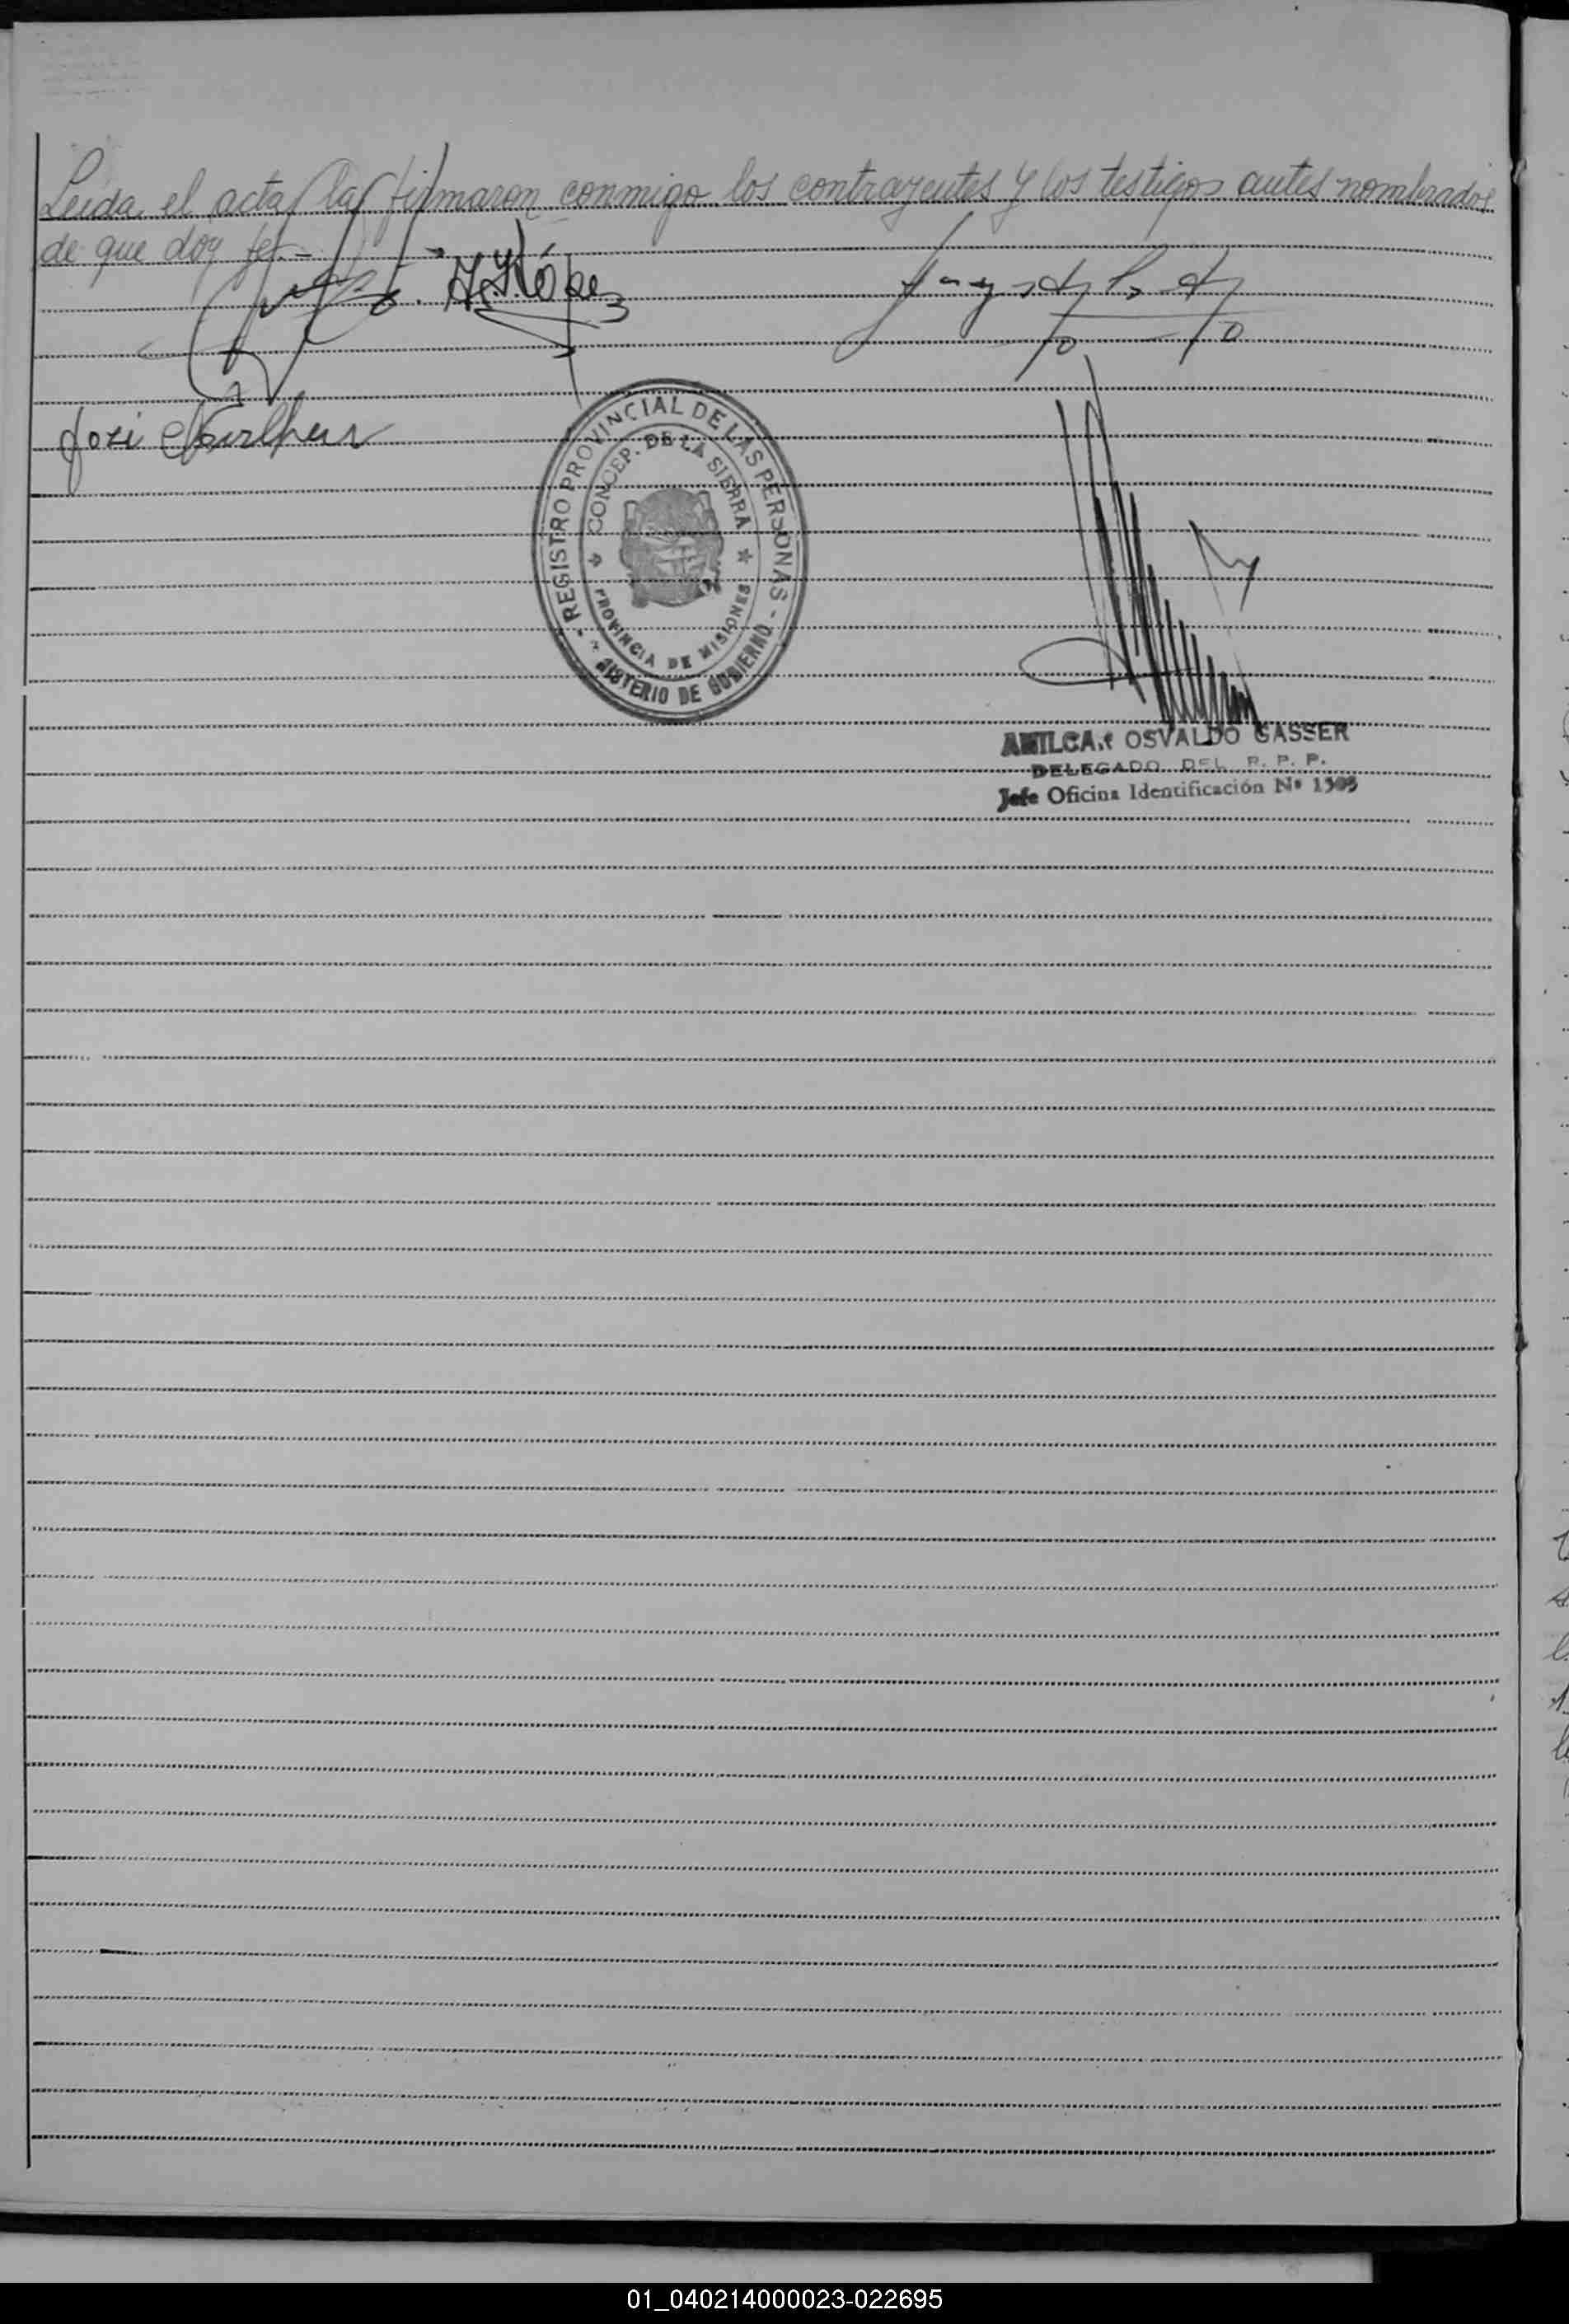 Leída el acta la firmaron conmigo los contrayentes y los testigos antes nombrados
de que doy fe.-
López
José
- REGISTRO PROVINCIAL DE LAS PERSONAS -
CONCEP. DE LA SIERRA
PROVINCIA DE MISIONES
NISTERIO DE GOBIERNO
AMILCAR OSVALDO GASSER
DELEGADO DEL R. P. P.
Jefe Oficina Identificación Nº
01_040214000023-022695